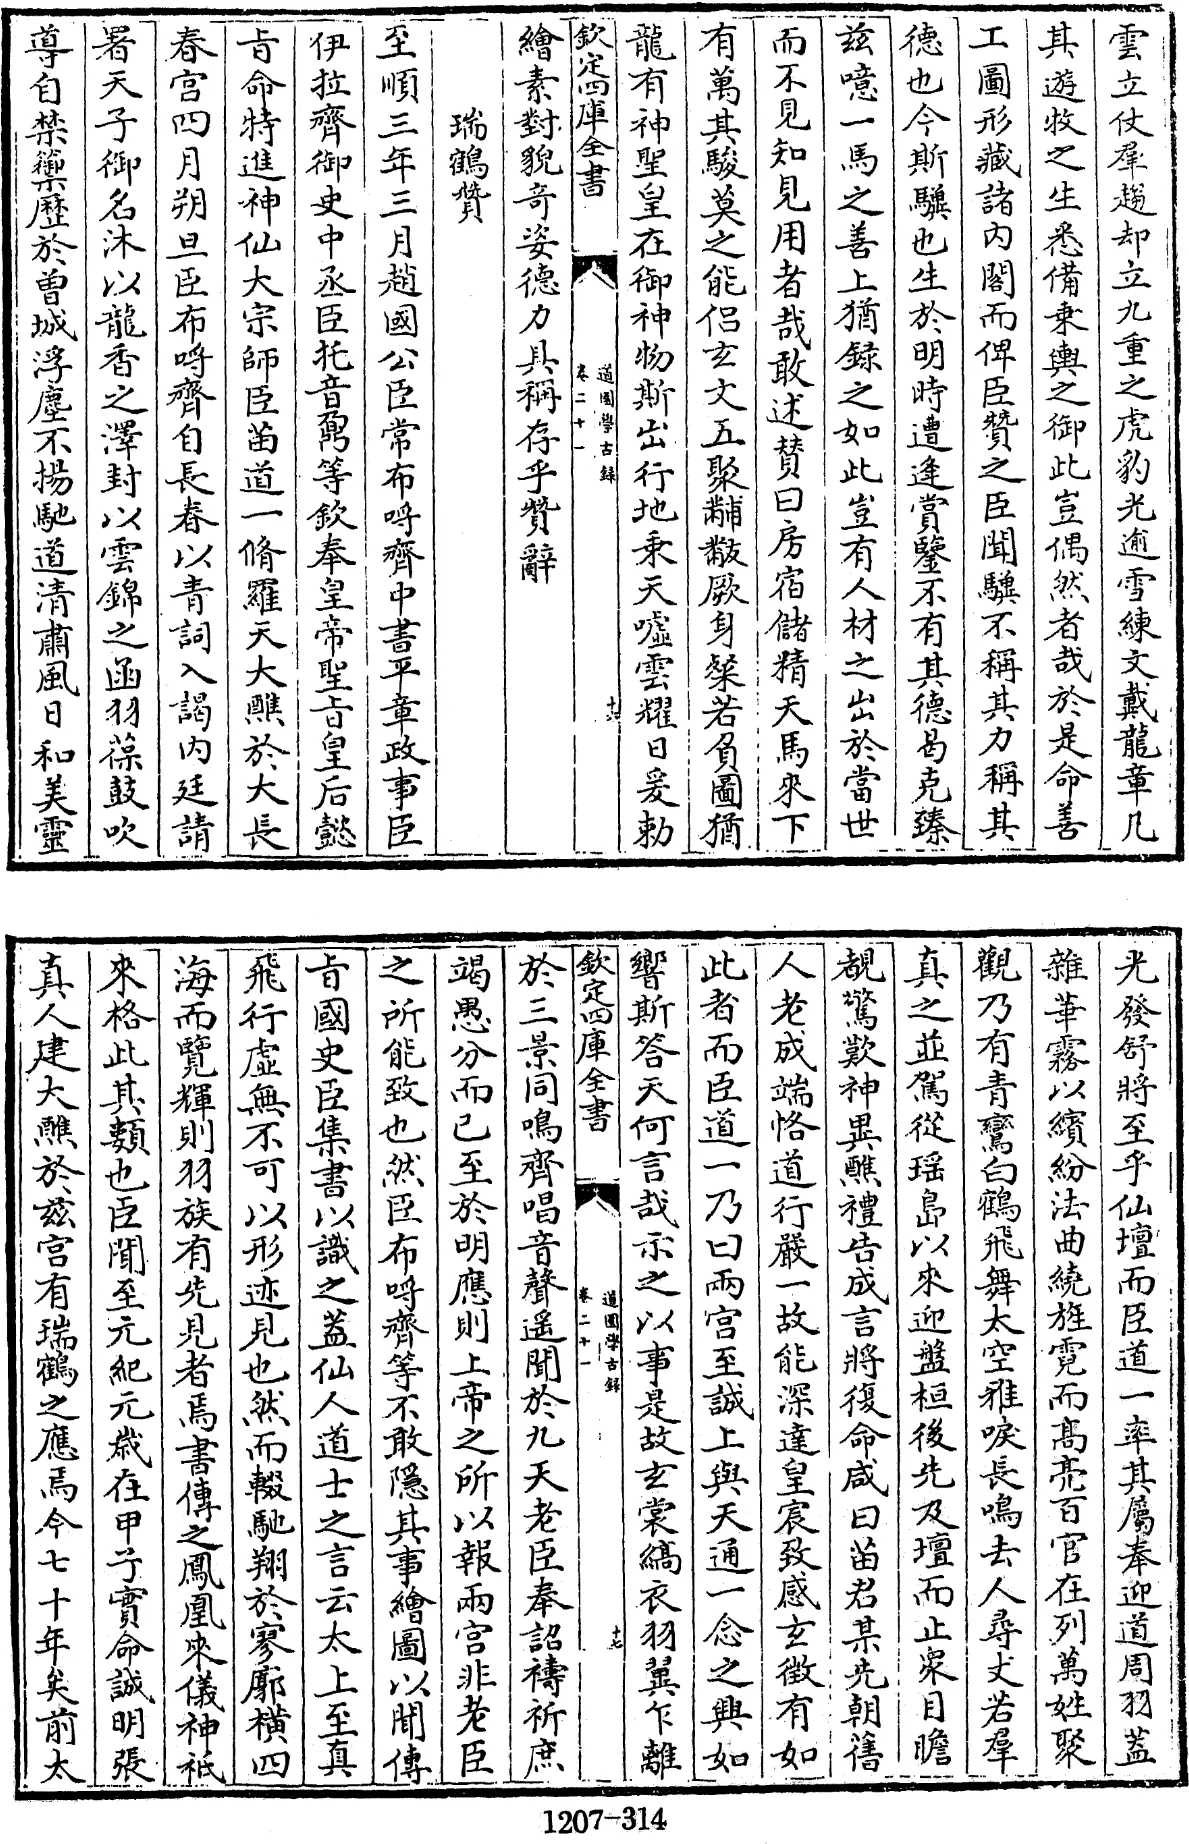 雲立仗羣趨却立九重之虎豹光逾雪練文戴龍章凡
其遊牧之生悉備乗輿之御此豈偶然者哉於是命善
工圖形藏諸内閣而俾臣贊之臣聞驥不稱其力稱其
徳也今斯驥也生於明時遭逢賞鑒不有其德曷克臻
兹噫一馬之善上猶録之如此豈有人材之出於當世
而不見知見用者哉敢述賛曰房宿儲精天馬來下
有萬其駿莫之能侣玄文五聚黼黻厥身粲若負圖猶
龍有神聖皇在御神物斯出行地乘天嘘雲耀日爰勅
欽定四庫全書
道園學古録
卷二十一
十六
繪素對貌奇姿德力具稱存乎贊辭
瑞鶴贊
至順三年三月趙國公臣常布呼齊中書平章政事臣
伊拉齊御史中丞臣托音鼐等欽奉皇帝聖㫖皇后懿
㫖命特進神仙大宗師臣苗道一脩羅天大醮於大長
春宫四月朔旦臣布呼齊自長春以青詞入謁内廷請
署天子御名沐以龍香之澤封以雲錦之函羽葆鼓吹
導自禁籞歴於曽城浮塵不揚馳道清肅風日和美靈
光發舒將至乎仙壇而臣道一率其屬奉迎道周羽蓋
雜華霧以繽紛法曲繞旌霓而髙亮百官在列萬姓聚
觀乃有青鸞白鶴飛舞太空雅唳長鳴去人尋丈若羣
真之並駕從瑶島以來迎盤桓後先及壇而止衆目瞻
覩驚歎神異醮禮告成言將復命咸曰苗君某先朝舊
人老成端恪道行嚴一故能深達皇宸致感玄徴有如
此者而臣道一乃曰兩宫至誠上與天通一念之興如
響斯答天何言哉示之以事是故玄裳縞衣羽翼乍離
欽定四庫全書
道園學古録
卷二十一
十七
於三景同鳴齊唱音聲遥聞於九天老臣奉詔禱祈庶
竭愚分而已至於明應則上帝之所以報兩宫非老臣
之所能致也然臣布呼齊等不敢隱其事繪圖以聞傳
㫖國史臣集書以識之蓋仙人道士之言云太上至真
飛行虚無不可以形迹見也然而輟馳翔於寥廓横四
海而覽輝則羽族有先見者焉書傳之鳳凰來儀神祗
來格此其類也臣聞至元紀元歲在甲子實命誠明張
真人建大醮於兹宫有瑞鶴之應焉今七十年矣前太
1207-314